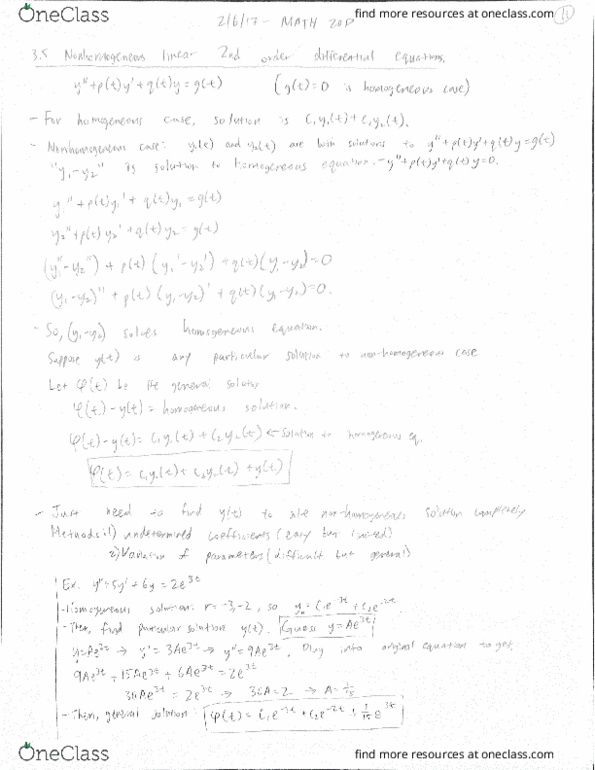 OneClass
find more resources at oneclass.com
2/6/17 - MATH 20D
11
3.5 Nonhomogeneous linear 2nd order differential equations.
y"+p(t)y'+q(t)y=g(t) (g(t)=0 is homogeneous case)
- For homogeneous case, solution is C₁y₁(t)+C₂y₂(t).
- Nonhomogeneous case: y₁(t) and y₂(t) are both solutions to y"+p(t)y'+q(t)y=g(t)
"y₁-y₂" is solution to homogeneous equation. -y"+p(t)y'+q(t)y=0.
y₁"+p(t)y₁'+q(t)y₁=g(t)
y₂"+p(t)y₂'+q(t)y₂=g(t)
(y₁"-y₂")+p(t)(y₁'-y₂')+q(t)(y₁-y₂)=0
(y₁-y₂)"+p(t)(y₁-y₂)'+q(t)(y₁-y₂)=0.
- So, (y₁-y₂) solves homogeneous equation.
Suppose y(t) is any particular solution to non-homogeneous case
Let φ(t) be the general solution
φ(t)-y(t)=homogeneous solution.
φ(t)-y(t)=C₁y₁(t)+C₂y₂(t)←Solution to homogeneous eq.
φ(t)=C₁y₁(t)+C₂y₂(t)+y(t)
- Just need to find y(t) to solve non-homogeneous solution completely
Methods: 1) undetermined coefficients (easy but limited)
2) Variation of parameters (difficult but general)
Ex. y"+5y'+6y=2e³ᵗ
- Homogeneous solution: r=-3,-2, so yₕ=C₁e⁻³ᵗ+C₂e⁻²ᵗ.
- Then, find particular solution y(t). Guess y=Ae³ᵗ
y=Ae³ᵗ → y'=3Ae³ᵗ → y"=9Ae³ᵗ, Plug into original equation to get
9Ae³ᵗ+15Ae³ᵗ+6Ae³ᵗ=2e³ᵗ
30Ae³ᵗ=2e³ᵗ → 30A=2 → A=1/15
- Then, general solution: φ(t)=C₁e⁻³ᵗ+C₂e⁻²ᵗ+1/15 e³ᵗ
OneClass
find more resources at oneclass.com